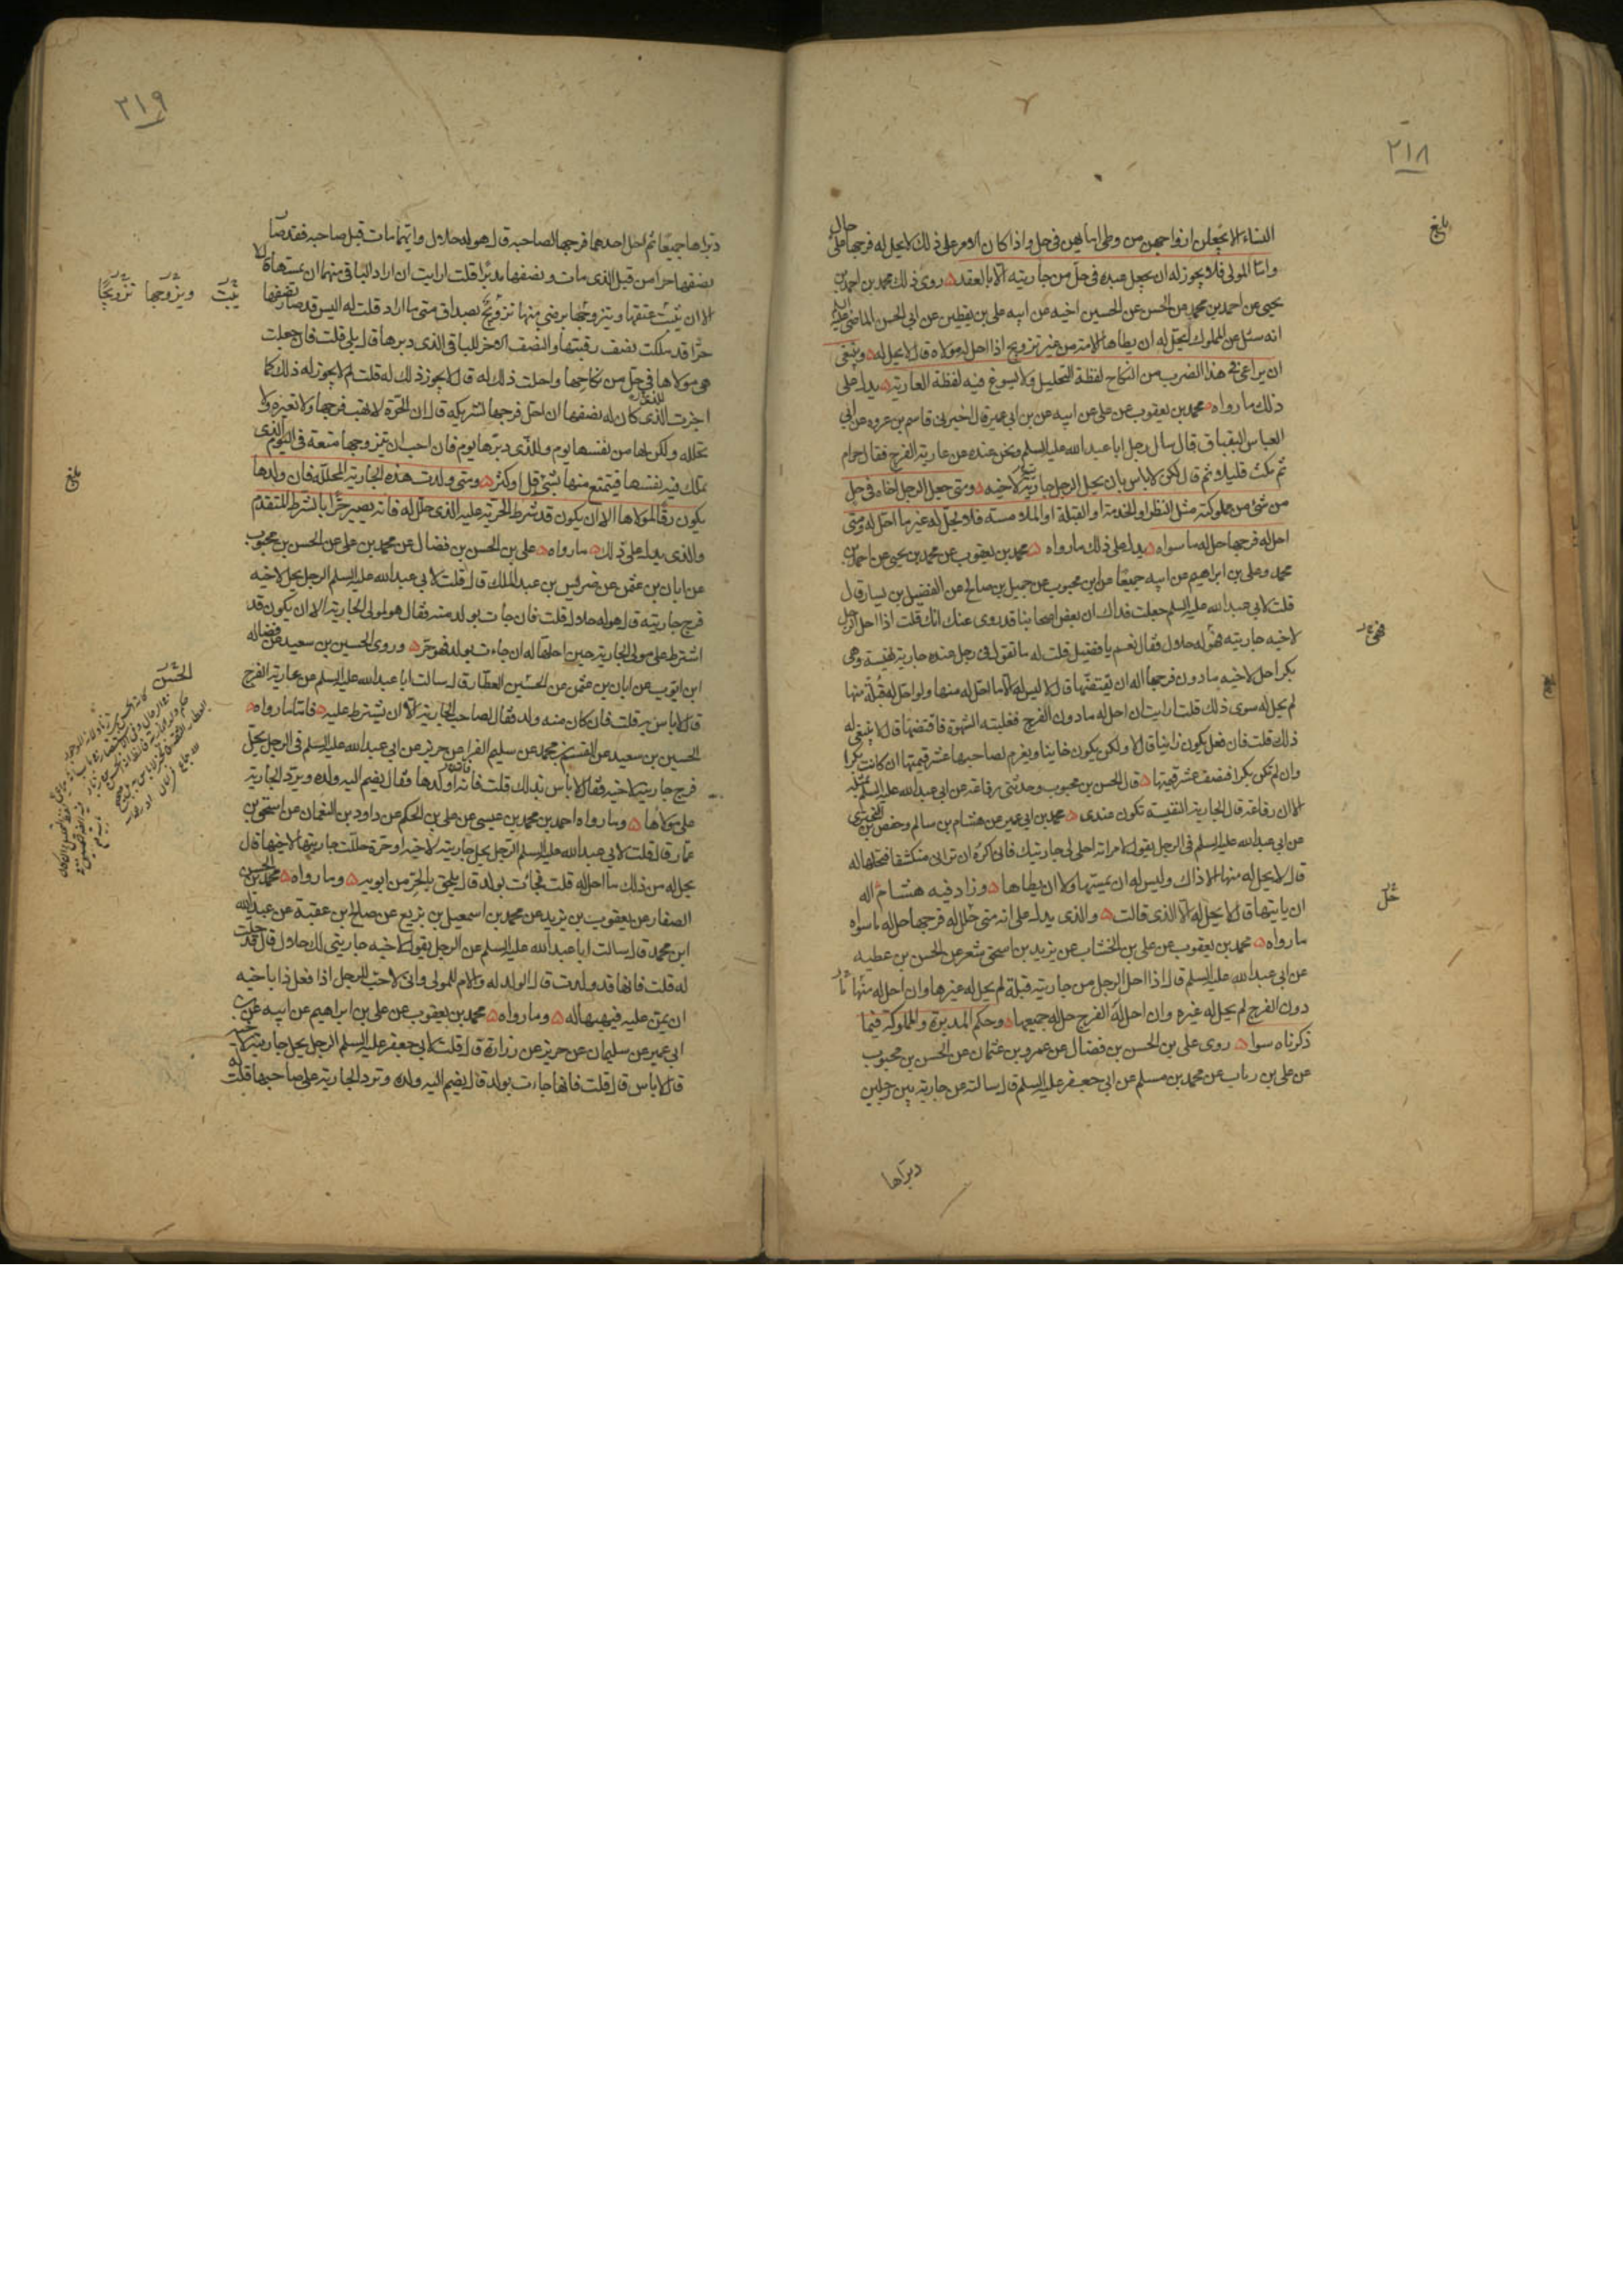 ٢١٨
بلغ
النساء لا يجعلن ازواجهن من وطى امائهن فى حل واذا كان الامر على ذلك لا يحل له فرجها على حال
وامّا المولى فلا يجوز له ان يجعل عبده فى حلّ من جاريته الّا بالعقد روى ذلك محمد بن احمد بن
يحيى عن احمد بن محمد عن الحسن عن الحسين اخيه عن ابيه على بن يقطين عن ابى الحسن الماضى عليه
انه سئل عن المملوك ايحل له ان يطا الامة من غير تزويج اذا احل له مولاه قال لا يحل له وينبغى
ان يراعى فى هذا الضرب من النكاح لفظة التحليل ولا يسوغ فيه لفظة العارية يدل على
ذلك ما رواه محمد بن يعقوب عن على عن ابيه عن بن ابى عمير قال اخبرنى قاسم بن عروه عن ابى
العباس البقباق قال سال رجل ابا عبد الله عليه السلم ونحن عنده عن عارية الفرج فقال حرام
ثم مكث قليلا ثم قال لكن لا باس بان يحل الرجل جاريته لاخيه ومتى جعل الرجل اخاه فى حل
من شئ من مملوكته مثل النظر او الخدمة او القبلة او الملامسة فلا يحل له غير ما احل له ومتى
احل له فرجها حل له ما سواه يدل على ذلك ما رواه محمد بن يعقوب عن محمد بن يحيى عن احمد بن
محمد وعلى بن ابراهيم عن ابيه جميعًا عن ابن محبوب عن جميل بن صالح عن الفضيل بن يسار قال
قلت لابى عبد الله عليه السلم جعلت فداك ان بعض اصحابنا قد روى عنك انك قلت اذا احل الرجل
لاخيه جاريته فهى له حلال فقال نعم يا فضيل قلت له ما تقول فى رجل عنده جارية نفيسة وهى
فهى
بكر احل لاخيه ما دون فرجها اله ان يفتضها قال لا ليس له الا ما احل له منها ولو احل له قبلة منها
لم يحل له سوى ذلك قلت ارايت ان احل له ما دون الفرج فغلبته الشهوة فافتضها قال لا ينبغى له
ذلك قلت فان فعل يكون زانيا قال لا ولكن يكون خاينا ويغرم لصاحبها عشر قيمتها ان كانت بكرا
وان لم تكن بكرا فنصف عشر قيمتها قال الحسن بن محبوب وحدثنى رفاعة عن ابى عبد الله عليه السلم مثله
الا ان رفاعة قال الجارية النفيسة تكون عندى محمد بن ابى عمير عن هشام بن سالم وحفص بن البخترى
عن ابى عبد الله عليه السلم فى الرجل يقول لامراته احلى لى جاريتك فانى اكره ان ترانى منكشفا فتحلها له
قال لا يحل له منها الا ذاك وليس له ان يمسها ولا ان يطاها وزاد فيه هشام اله
ان ياتيها قال لا يحل له الا الذى قالت والذى يدل على انه متى حلل له فرجها حل له ما سواه
حلل
ما رواه محمد بن يعقوب عن على بن الخشاب عن يزيد بن اسحق شعر عن الحسن بن عطيه
عن ابى عبد الله عليه السلم قال اذا احل الرجل من جاريته قبلة لم يحل له غيرها وان احل له منها ما
دون الفرج لم يحل له غيره وان احل له الفرج حل له جميعها وحكم المدبرة والمملوكة فيما
ذكرناه سواء روى على بن الحسن بن فضال عن عمرو بن عثمان عن الحسن بن محبوب
عن على بن رئاب عن محمد بن مسلم عن ابى جعفر عليه السلم قال سالته عن جارية بين رجلين
دبّراها
٢١٩
دبّراها جميعًا ثم احل احدهما فرجها لصاحبه قال هو له حلال وايهما مات قبل صاحبه فقد صار
نصفها حرا من قبل الذى مات ونصفها مدبّرًا قلت ارايت ان اراد الباقى منهما ان يمسها قال لا
الا ان يثبت عتقها ويتزوجها برضى منها تزويج بصداق متى ما اراد قلت له اليس قد صار نصفها
يثبت ويزوجها تزويجًا
حرّا قد ملكت نصف رقبتها والنصف الاخر للباقى الذى دبرها قال بلى قلت فان جعلت
هى مولاها فى حلّ من نكاحها واحلت ذلك له قال لا يجوز ذلك له قلت لم لا يجوز له ذلك كما
اجزت للذى كان له نصفها ان احل فرجها لشريكه قال ان الحرّة لا تهب فرجها ولا تعيره ولا
تحلله ولكن لها من نفسها يوم وللذى دبرها يوم فان احب ان يتزوجها متعة فى اليوم الذى
تملك فيه نفسها فيتمتع منها بشئ قل او كثر ومتى ولدت هذه الجارية المحللة فان ولدها
بلغ
يكون رقّا لمولاها الا ان يكون قد شرط الحرية عليه الذى حلل له فانه يصير حرّا بالشرط المتقدم
والذى يدل على ذلك ما رواه على بن الحسن بن فضال عن محمد بن على عن الحسن بن محبوب
عن ابان بن عثمن عن ضريس بن عبد الملك قال قلت لابى عبد الله عليه السلم الرجل يحل لاخيه
فرج جاريته قال هو له حلال قلت فان جاءت بولد منه فقال هو لمولى الجارية الا ان يكون قد
اشترط على مولى الجارية حين احلها له ان جاءت بولد فهو حرّ وروى الحسين بن سعيد عن فضاله
ابن ايوب عن ابان بن عثمن عن الحسين العطار قال سالت ابا عبد الله عليه السلم عن عارية الفرج
الحسن
قال لا باس به قلت فان كان منه ولد فقال لصاحب الجارية الا ان يشترط عليه فاما ما رواه
الحسين بن سعيد عن القسم بن محمد عن سليم الفرا عن حريز عن ابى عبد الله عليه السلم فى الرجل يحلّ
فرج جاريته لاخيه فقال لا باس بذلك قلت فانه اولدها فقال يضم اليه ولده ويردّ الجارية
على مولاها وما رواه احمد بن محمد بن عيسى عن على بن الحكم عن داود بن النعمان عن اسحق بن
عمّار قال قلت لابى عبد الله عليه السلم الرجل يحل جاريته لاخيه او حرة حللت جاريتها لاخيها قال
يحل له من ذلك ما احل له قلت فجائت بولد قال يلحق بالحرّ من ابويه وما رواه محمد بن الحسن
الصفار عن يعقوب بن يزيد عن محمد بن اسمعيل بن بزيع عن صالح بن عقبة عن عبد الله
ابن محمد قال سالت ابا عبد الله عليه السلم عن الرجل يقول لاخيه جاريتى لك حلال قال قد حلت
له قلت فانها قد ولدت قال الولد له والام للمولى وانى لاحبّ للرجل اذا فعل ذا باخيه
ان يمن عليه فيهبها له وما رواه محمد بن يعقوب عن على بن ابراهيم عن ابيه عن بن
ابى عمير عن سليمان عن حريز عن زرارة قال قلت لابى جعفر عليه السلم الرجل يحل جاريته لاخيه
قال لا باس قال قلت فانها جاءت بولد قال يضم اليه ولده وترد الجارية على صاحبها قلت له